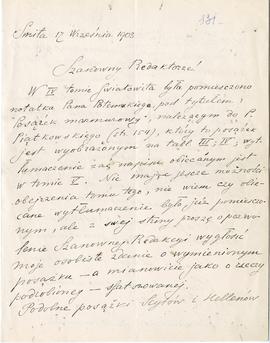 131.
Smiła 17 Września 1903
Szanowny Redaktorze!
W IV tomie Światowita była pomieszczona
notatka Pana Potemskiego, pod tytułem:
"Posążek marmurowy", należącym do P.
Piątkowskiego (str. 104), który to posążek
jest wyobrażonym na tabl. III; IV; wy-
tłumaczenie zaś napisów obiecanem jest
w tomie V. Nie mając jeszcze możności
obejrzenia tomu tego, nie wiem czy obie-
cane wytłumaczenie było już pomiesz-
czonem, ale z swej strony proszę o pozwo-
lenie Szanownej Redakcyi wygłosić
moje osobiste zdanie o wymienionym
posążku – a mianowicie jako o rzeczy
podrobionej – sfałszowanej.
Podobne posążki Scytów i Hellenów